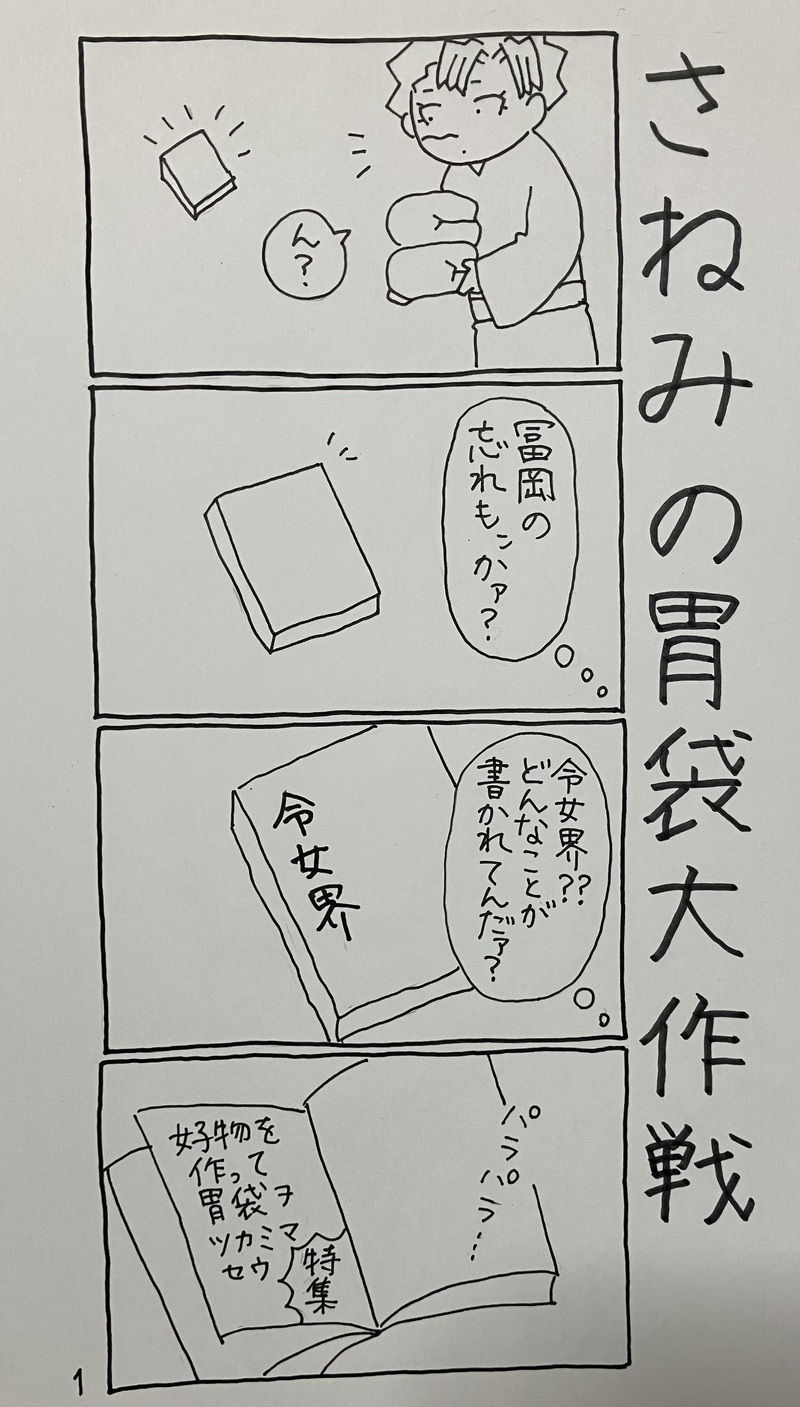 さねみの胃袋大作戦
ん？
冨岡の
忘れもンかァ？
令女界??
どんなことが
書かれてんだァ？
令女界
パラパラ…
好物を
作って
胃袋ヲ
ツカミマ
セウ
特集
1